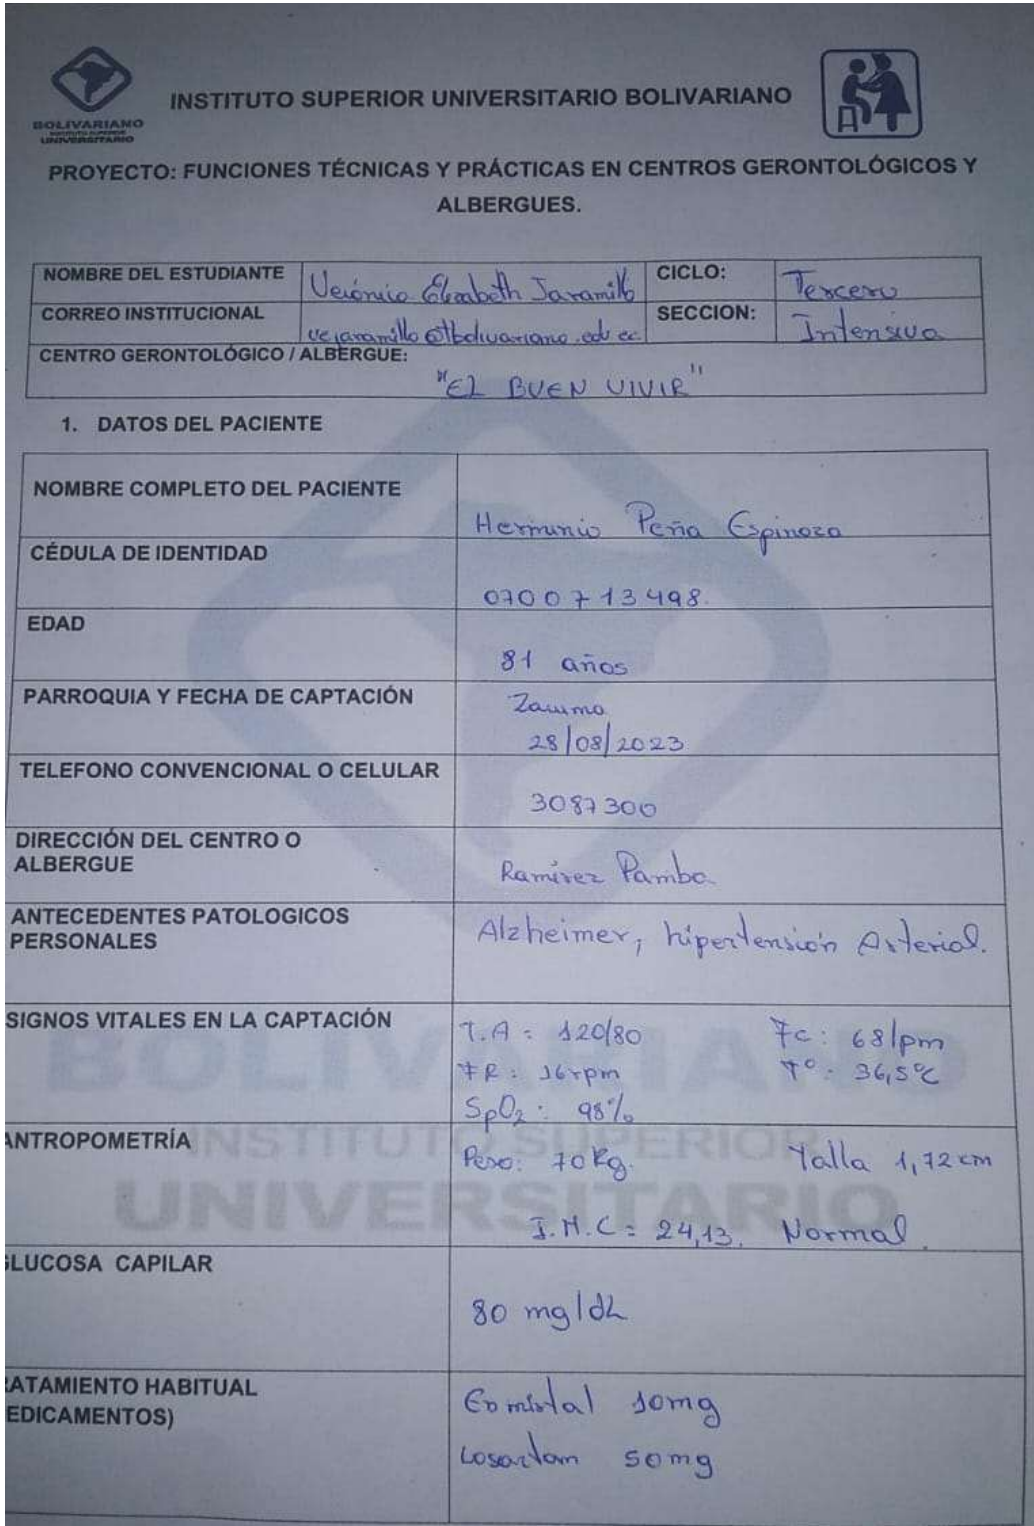 BOLIVARIANO
INSTITUTO SUPERIOR
UNIVERSITARIO
INSTITUTO SUPERIOR UNIVERSITARIO BOLIVARIANO
PROYECTO: FUNCIONES TÉCNICAS Y PRÁCTICAS EN CENTROS GERONTOLÓGICOS Y
ALBERGUES.
NOMBRE DEL ESTUDIANTE Verónica Elizabeth Jaramillo CICLO: Tercero
CORREO INSTITUCIONAL vejaramillo@tbolivariano.edu.ec. SECCION: Intensiva
CENTRO GERONTOLÓGICO / ALBERGUE:
"El BUEN VIVIR"
1. DATOS DEL PACIENTE
NOMBRE COMPLETO DEL PACIENTE
Herminio Peña Espinoza
CÉDULA DE IDENTIDAD
0700713498.
EDAD
81 años
PARROQUIA Y FECHA DE CAPTACIÓN
28/08/2023
TELEFONO CONVENCIONAL O CELULAR
3087300
DIRECCIÓN DEL CENTRO O
ALBERGUE
Ramírez Pamba
ANTECEDENTES PATOLOGICOS
PERSONALES
Alzheimer, hipertensión Arterial.
SIGNOS VITALES EN LA CAPTACIÓN
T.A: 120/80 Fc: 68lpm
FR: 16rpm T°: 36,5°C
SpO2: 98%
BOLIVARIANO
ANTROPOMETRÍA
Peso: 70Kg. Talla 1,72cm
I.M.C = 24,13. Normal.
INSTITUTO SUPERIOR
UNIVERSITARIO
GLUCOSA CAPILAR
80 mg/dL
ATAMIENTO HABITUAL
EDICAMENTOS)
10mg
Losartam 50mg